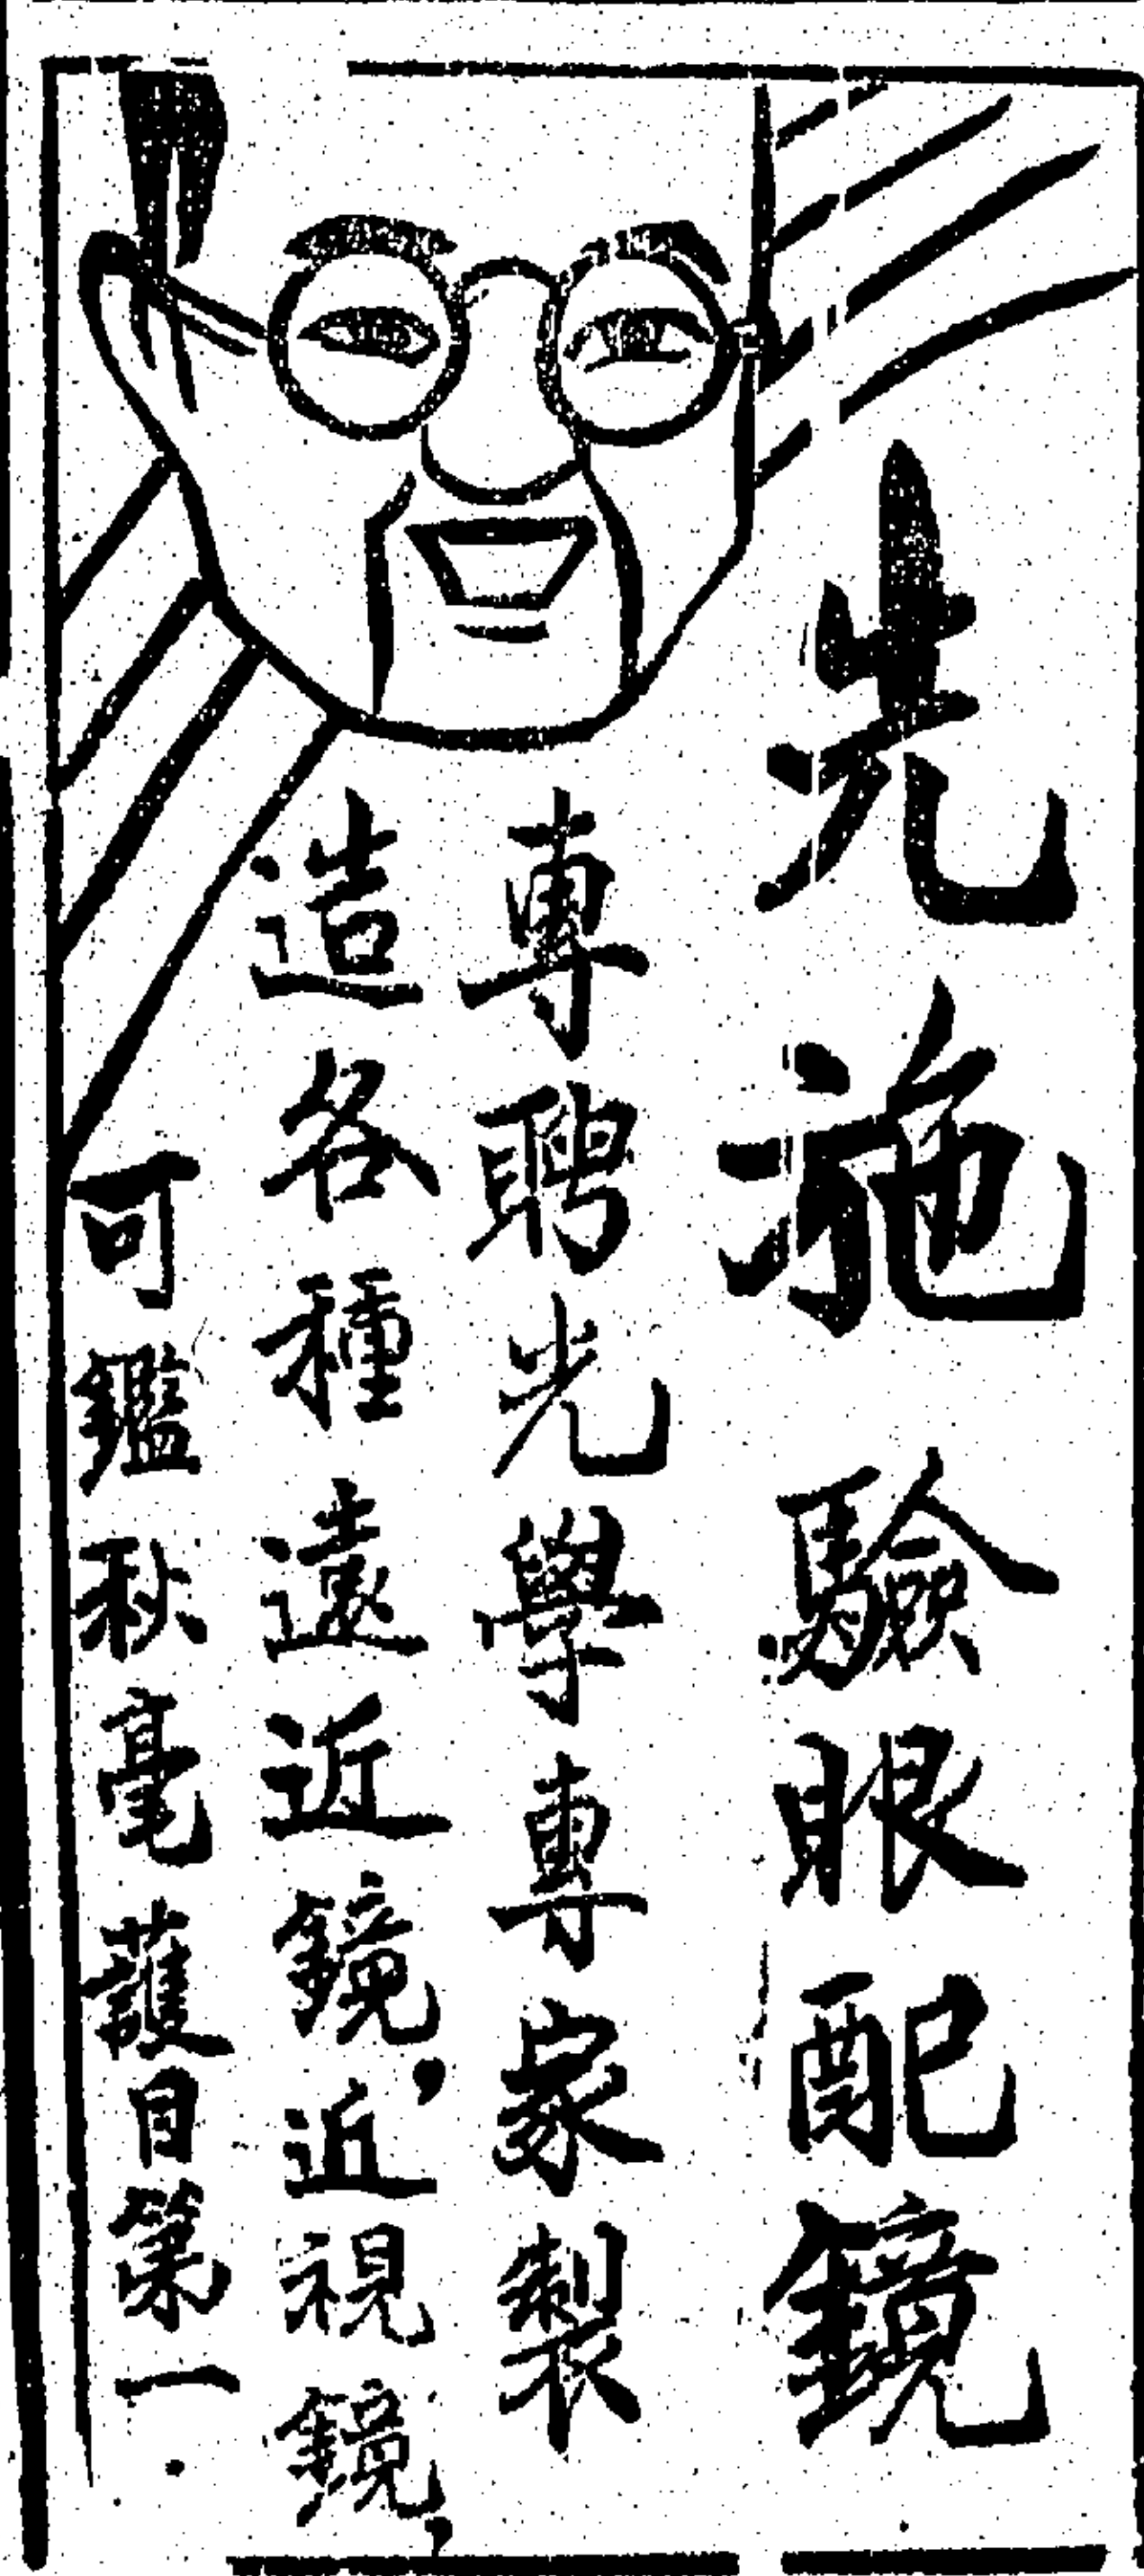 先施驗眼配鏡
專聘光學專家製
造各種遠近鏡，近視鏡，
可鑑秋毫護目第一．